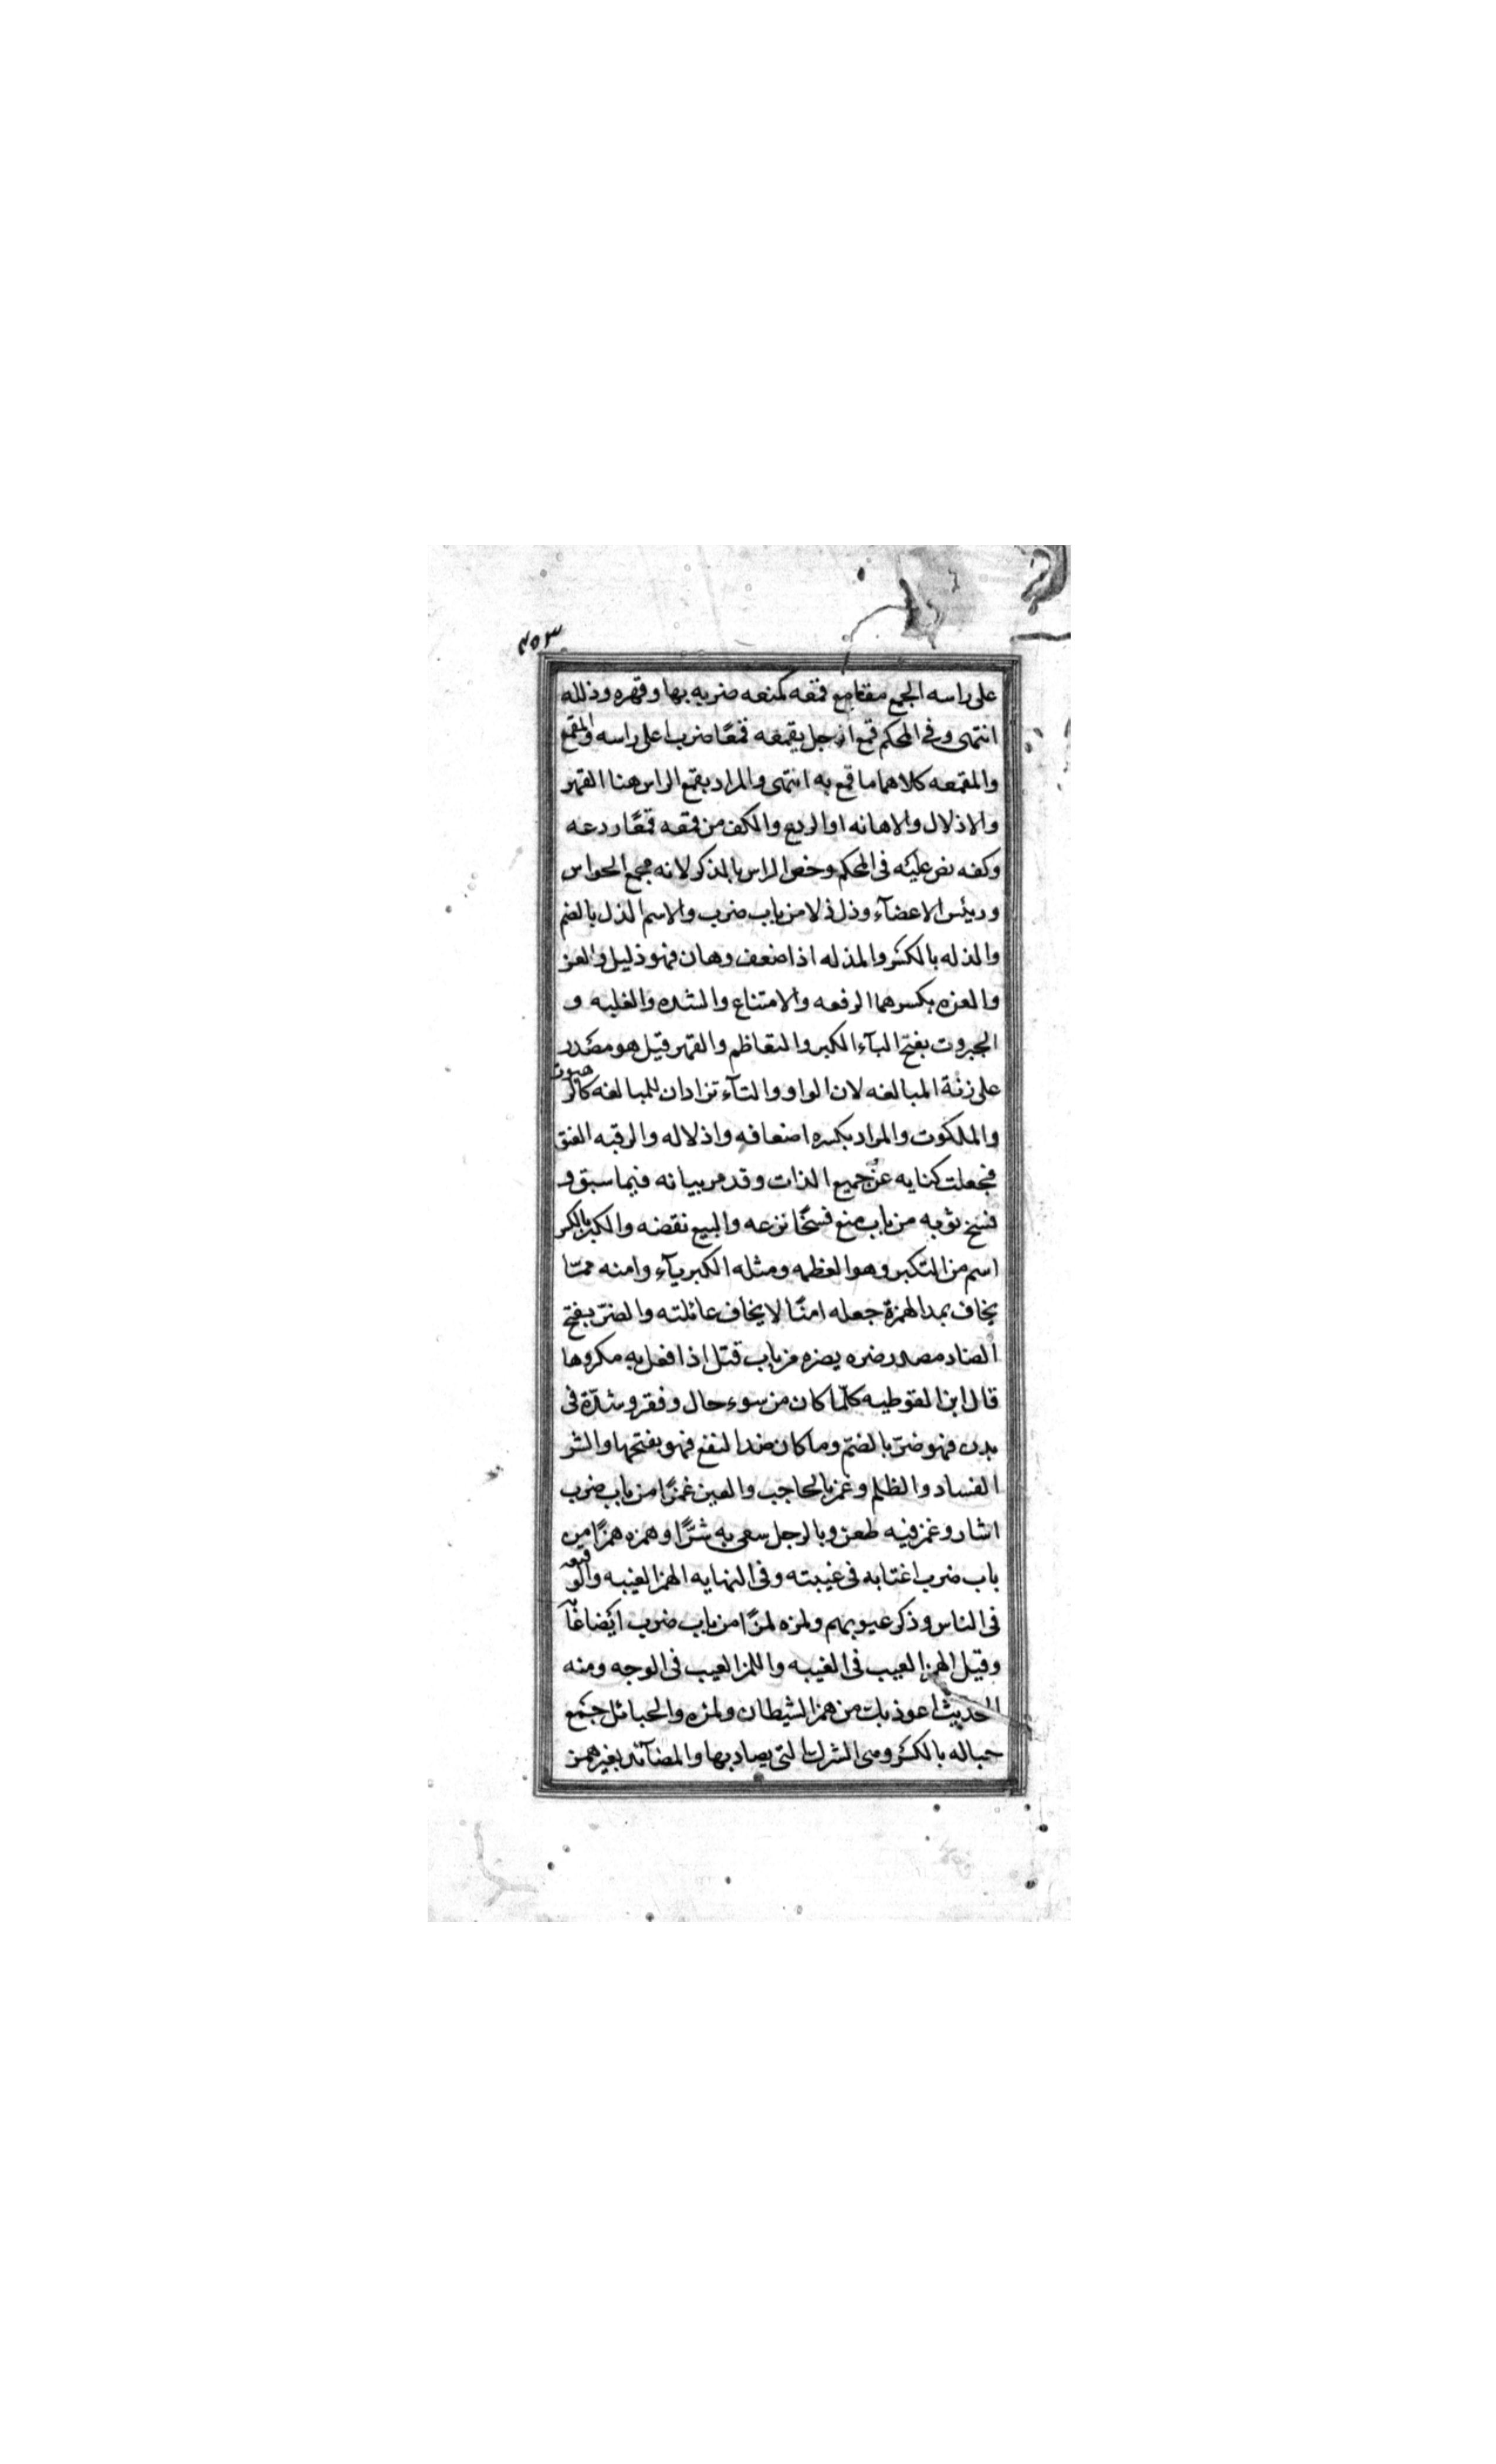 ٤٥٣
على راسه الجمع مقامع قمعه كمنعه ضربه بها وقهره وذلله
انتهى وفى المحكم قمع الرجل يقمعه قمعًا ضرب اعلى راسه والمقمع
والمقمعه كلاهما ما قمع به انتهى والمراد بقمع الراس هنا القهر
والاذلال والاهانه او الردع والكف من قمعه قمعًا ردعه
وكفه نص عليه فى المحكم وخص الراس بالذكر لانه مجمع الحواس
ورئيس الاعضآء وذل ذلا من باب ضرب والاسم الذل بالضم
والذله بالكسر والمذله اذا ضعف وهان فهو ذليل والعز
والعزه بكسرهما الرفعه والامتناع والشده والغلبه و
الجبروت بفتح البآء الكبر والتعاظم والقهر قيل هو مصدر
على زنة المبالغه لان الواو والتآء تزادان للمبالغه كالرحموت
والملكوت والمراد بكسره اضعافه واذلاله والرقبه العنق
فجعلت كنايه عن جميع الذات وقد مر بيانه فيما سبق و
فسخ ثوبه من باب منع فسخًا نزعه والبيع نقضه والكبر بالكسر
اسم من التكبر وهو العظمه ومثله الكبريآء وامنه ممّا
يخاف بمد الهمزة جعله امنًا لا يخاف غائلته والضرّ بفتح
الضاد مصدر ضره يضره من باب قتل اذا فعل به مكروها
قال ابن القوطيه كلّما كان من سوء حال وفقر وشدّة فى
بدن فهو ضرّ بالضمّ وما كان ضد النفع فهو بفتحها والشر
الفساد والظلم وغمز بالحاجب والعين غمزًا من باب ضرب
اشار وغمز فيه طعن وبالرجل سعى به شرًّا وهمزه همزًا من
باب ضرب اغتابه فى غيبته وفى النهايه الهمز الغيبه والوقيعه
فى الناس وذكر عيوبهم ولمزه لمزًا من باب ضرب ايضا عابه
وقيل الهمز العيب فى الغيبه واللمز العيب فى الوجه ومنه
الحديث اعوذ بك من همز الشيطان ولمزه والحبائل جمع
حباله بالكسر وهى الشرك التى يصاد بها والمصآئد بغير همز